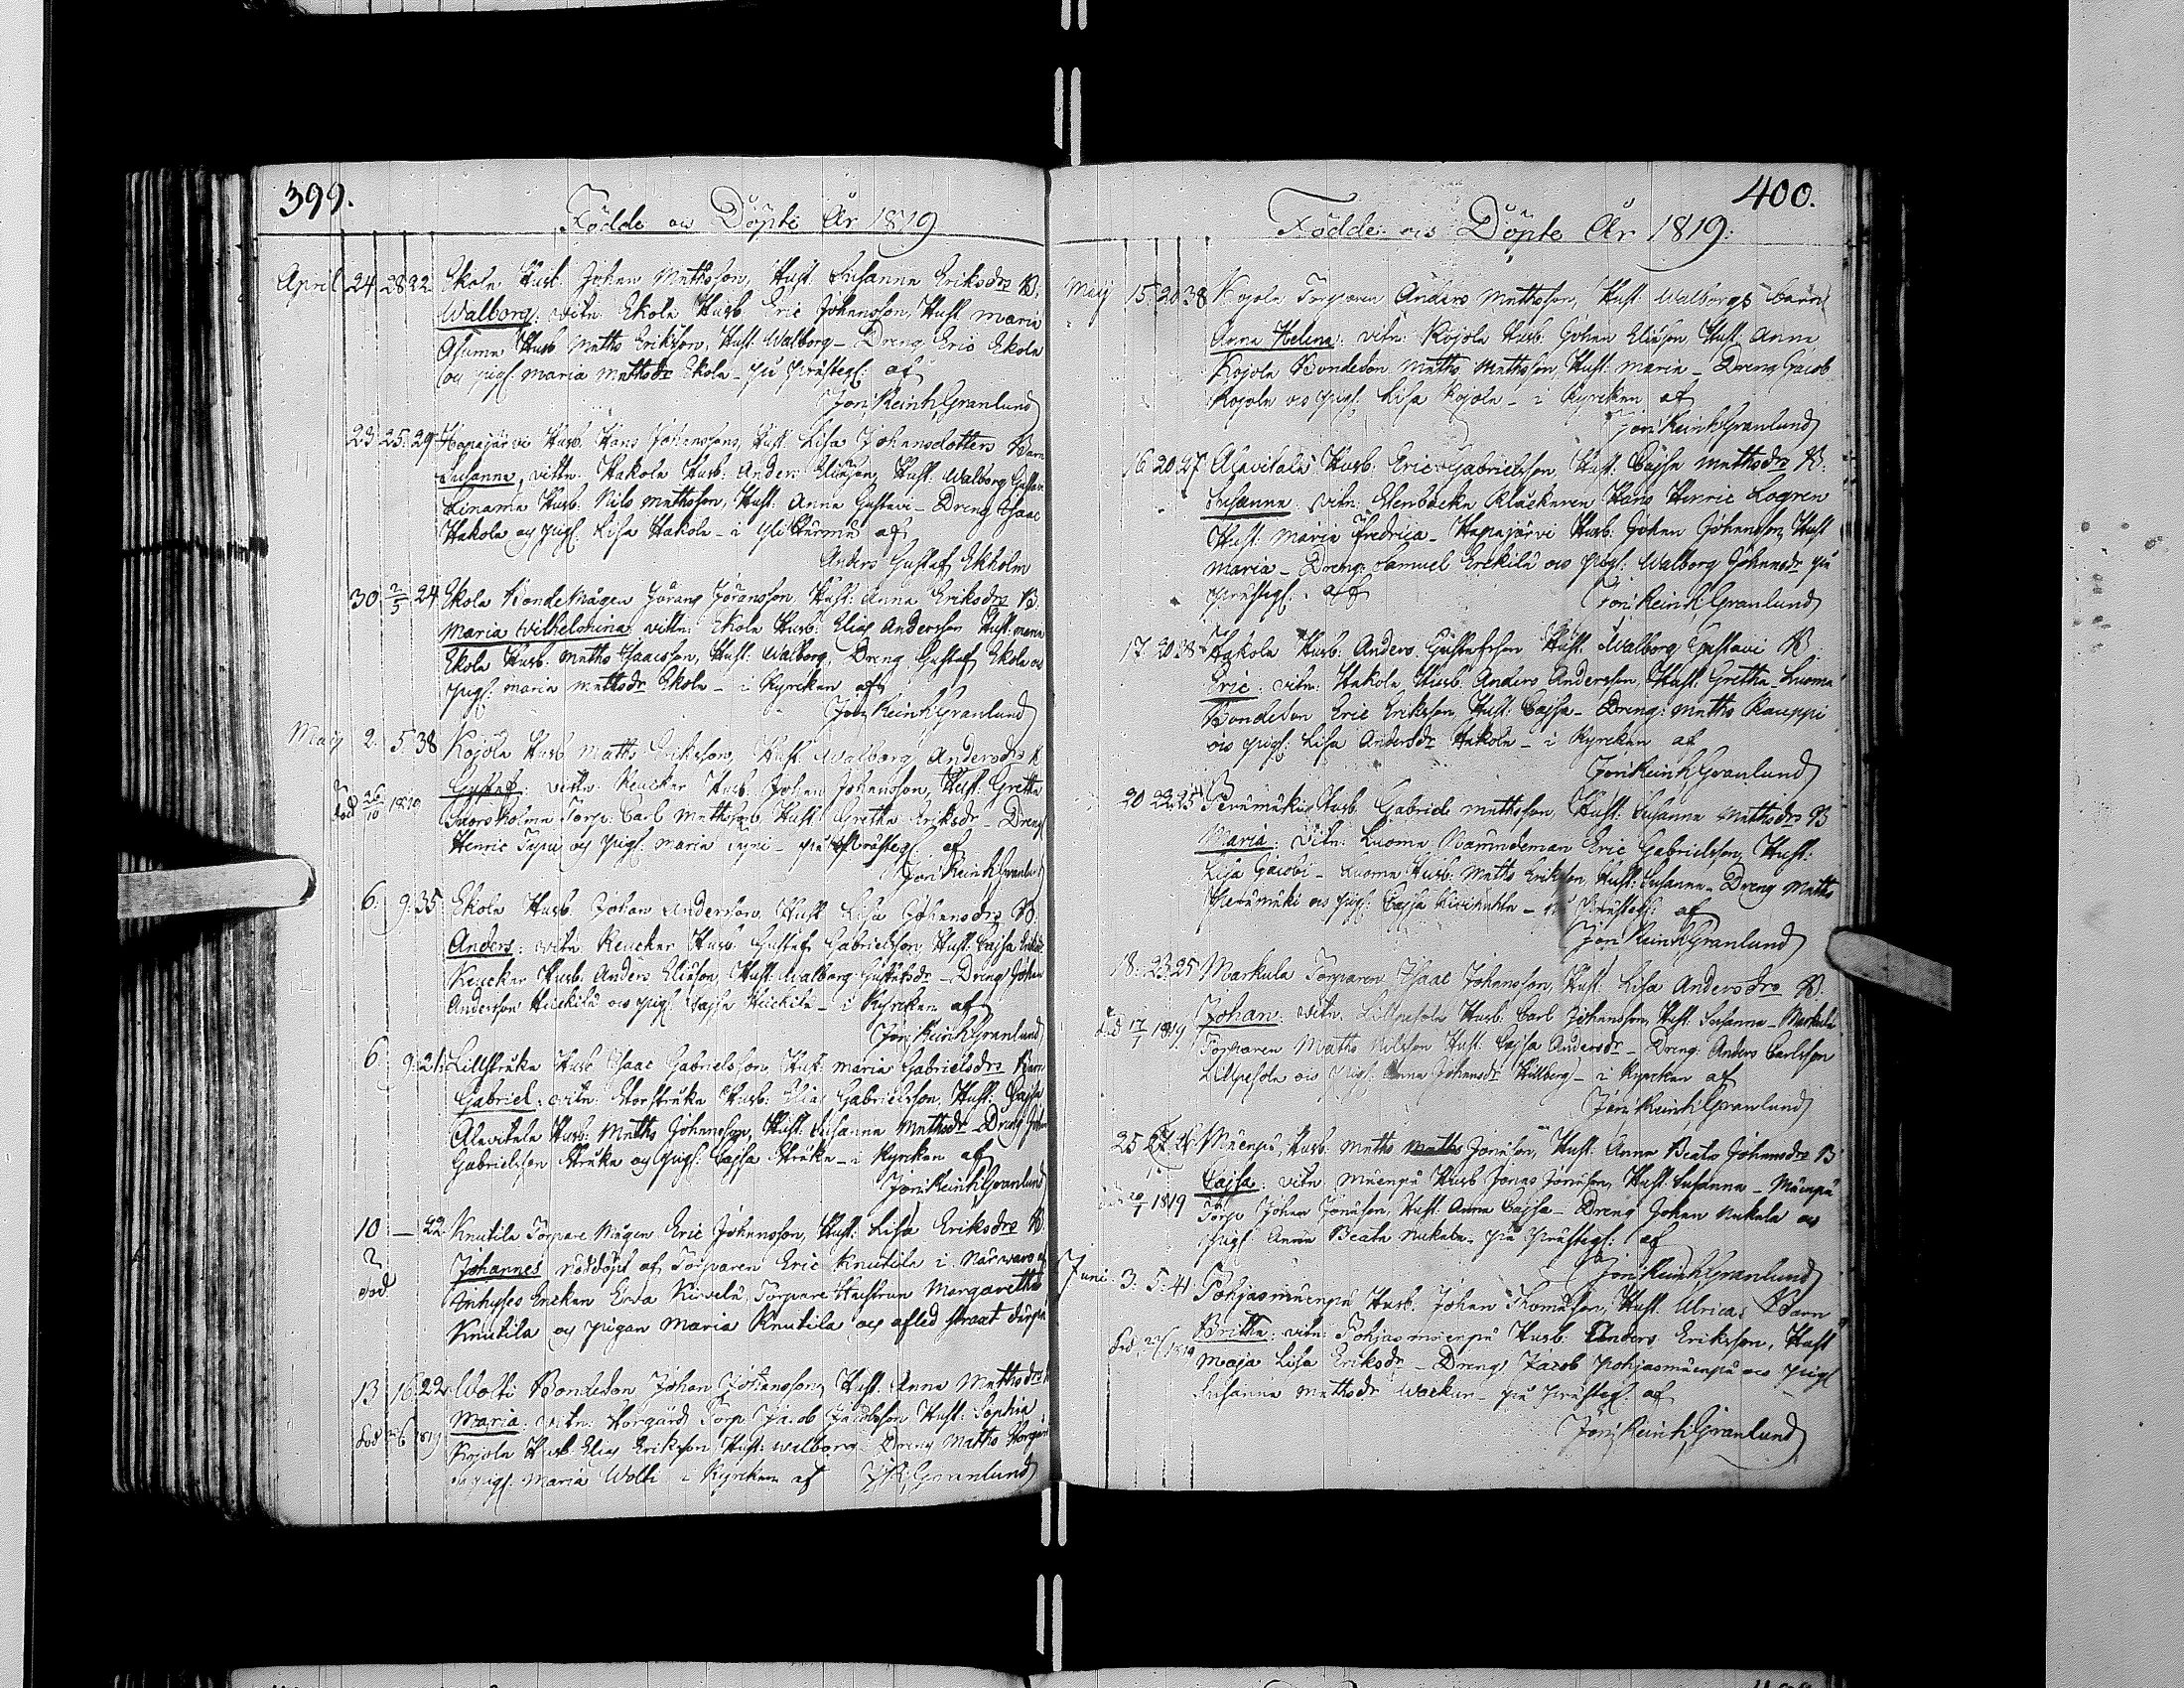 399.
Födde och Döpte År 1819
April 24. 28. 22. Ekola Husb. Johan Mathsson, Hust. Susanna Eriksdrs B.
Walborg: vitn: Ekola Husb. Eric Johansson, Hust. Maria
Husb Matts Eriksson, Hust. Walborg – Dreng Eric Ekola
och pig. Maria Mathsdr Ekola – på Prästeg: af
Jon: Reinh. Granlund
23. 25. 29. Hapajärvi Husb. Hans Johanssons, Hust. Lisa Johansdotters Barn
Susanna, vittn. Hakola Husb: Anders Eliasson, Hust. Walborg
Linama Husb: Nils Mathsson, Hust: Anna Gustavi – Dreng Isaac
Hakola och pig: Lisa Hakola – i Yli Härmä af
Anders Gustaf Ekholm
30. 2/5. 24. Ekola BondeMågen Jöran Göransson, Hust: Anna Eriksdrs B.
Maria Wilhelmina vittn: Ekola Husb: Elias Andersson Hust: Maria
Ekola Husb: Matths Isaacsson, Hust: Walborg, Dreng Gustaf Ekola och
pig: Maria Mathsdr Ekola – i Kyrckan af
Jon: Reinh. Granlund
Maij 2. 5. 38 Kojola Husb Maths Eriksson, Hust. Walborg Andersdrs B
Gustaf: vittn: Husb. Johan Johansson, Hust: Gretha
död 26/10 1819 Torp: Carl Mathsson Hust: Gretha Eriksdr – Dreng
Henric och pig: Maria – på Prästeg: af
Jon: Reinh. Granlund
6. 9. 35. Ekola Husb. Johan Andersson, Hust Lisa Johansdrs B.
Anders: vitn Husb. Gustaf Gabrielsson, Hust. Cajsa
Husb. Anders Eliasson, Hust. Walborg Gustafsdr – Dreng Johan
Andersson och pig: Cajsa – i Kyrckan af
Jon: Reinh. Granlund
6 9. 21. Husb Isaac Gabrielsson, Hust: Maria Gabrielsdrs Barn
Gabriel: vitn: Husb: Elias Gabrielsson, Hust: Cajsa
Alavitala Husb: Matths Johansson, Hust: Susanna Mathsdr – Dreng
Gabrielsson och pig: Cajsa – i Kyrckan af
Jon: Reinh. Granlund
10 — 22 Knutila Torpare Mågen Eric Johansson, Hust: Lisa Eriksdrs B.
död Johannes nöddöpt af Torparen Eric Knutila i Närwaro af
Inhyses Enckan Ewa Torpare Hustrun Margaretha
Knutila och pigan Maria Knutila och afled straxt
13 16. 22 Wolti Bondeson Johan Johansson, Hust. Anna Mathsdrs B
Maria: vitn: Torp: Jacob Jacobsson Hust: Sophia
död 1819 Kojola Husb Elias Eriksson Hust: Walborg Dreng Maths
och pig: Maria Wolti i Kyrckan af J: R: Granlund
400.
Födde och Döpte År 1819:
Maij 15. 20. 38 Kojola Torparen Anders Mathsson, Hust: Walborgs Barn
Anna Helena: vitn: Kojola Husb: Johan Eliasson, Hust: Anna
Kojola Bondeson Maths Mathsson, Hust: Maria – Dreng Jacob
Kojola och pig: Lisa Kojola – i Kyrckan af
Jon: Reinh. Granlund
16. 20. 27. Alavitala Husb: Eric Gabrielsson, Hust: Cajsa Mathsdrs B:
Susanna: vitn: Klåckaren Hans Henric Logren
Hust: Maria Fredrica – Hapajärvi Husb: Johan Johansson, Hust
Maria – Dreng: Samuel och Pig: Walborg Johansdr på
Prästeg: af
Jon: Reinh. Granlund
17. 20. 38 Hakola Husb: Anders Gustafsson Hust: Walborg Gustavi B.
Eric: vitn: Hakola Husb: Anders Andersson, Hust: Gretha – Luoma
Bondeson Eric Eriksson, Hust: Cajsa – Dreng: Maths Kauppi
och pig: Lisa Andersdr Hakola – i Kyrckan af
Jon: Reinh. Granlund
20. 22. 25. Perämäki Husb. Gabriel Mathsson, Hust: Susanna Mathsdrs B
Maria: Vitn: Luoma Nämndeman Eric Gabrielsson, Hust:
Lisa Jacobi – Luoma Husb: Maths Eriksson, Hust: Susanna – Dreng Maths
Perämäki och pig: Cajsa – på Prästeg: af
Jon: Reinh. Granlund
18. 23. 25 Markula Torparen Isaac Johansson, Hust: Lisa Andersdrs B.
död 17/7 1819 Johan: vitn: Husb: Carl Johansson, Hust: Susanna – Markula
Torparen Maths Nilsson Hust. Cajsa Andersdr – Dreng: Anders Carlsson
och pig: Anna Johansdr Killberg – i Kyrckan af
Jon: Reinh. Granlund
25 27. Mäenpä, Husb: Maths Jonæson, Hust: Anna Beata Johansdrs B
Cajsa: vitn: Mäenpä Husb Jonas Jonæson, Hust. Susanna – Mäenpä
1819 Torp Johan Jonæson, Hust. Anna Cajsa – Dreng Johan Nukala och
Pig: Anna Beata Nukala – på Prästeg: af
Jon: Reinh. Granlund
Juni 3. 5. 41 Pohjasmäenpä Husb: Johan Thomæson, Hust: Ulricas Barn
Britha: vitn: Pohjasmäenpä Husb: Anders Eriksson, Hust
död 1819 Maja Lisa Eriksdr – Dreng Jacob Pohjasmäenpä och pig
Susanna Mathsdr – på Prästeg: af
Jon: Reinh. Granlund